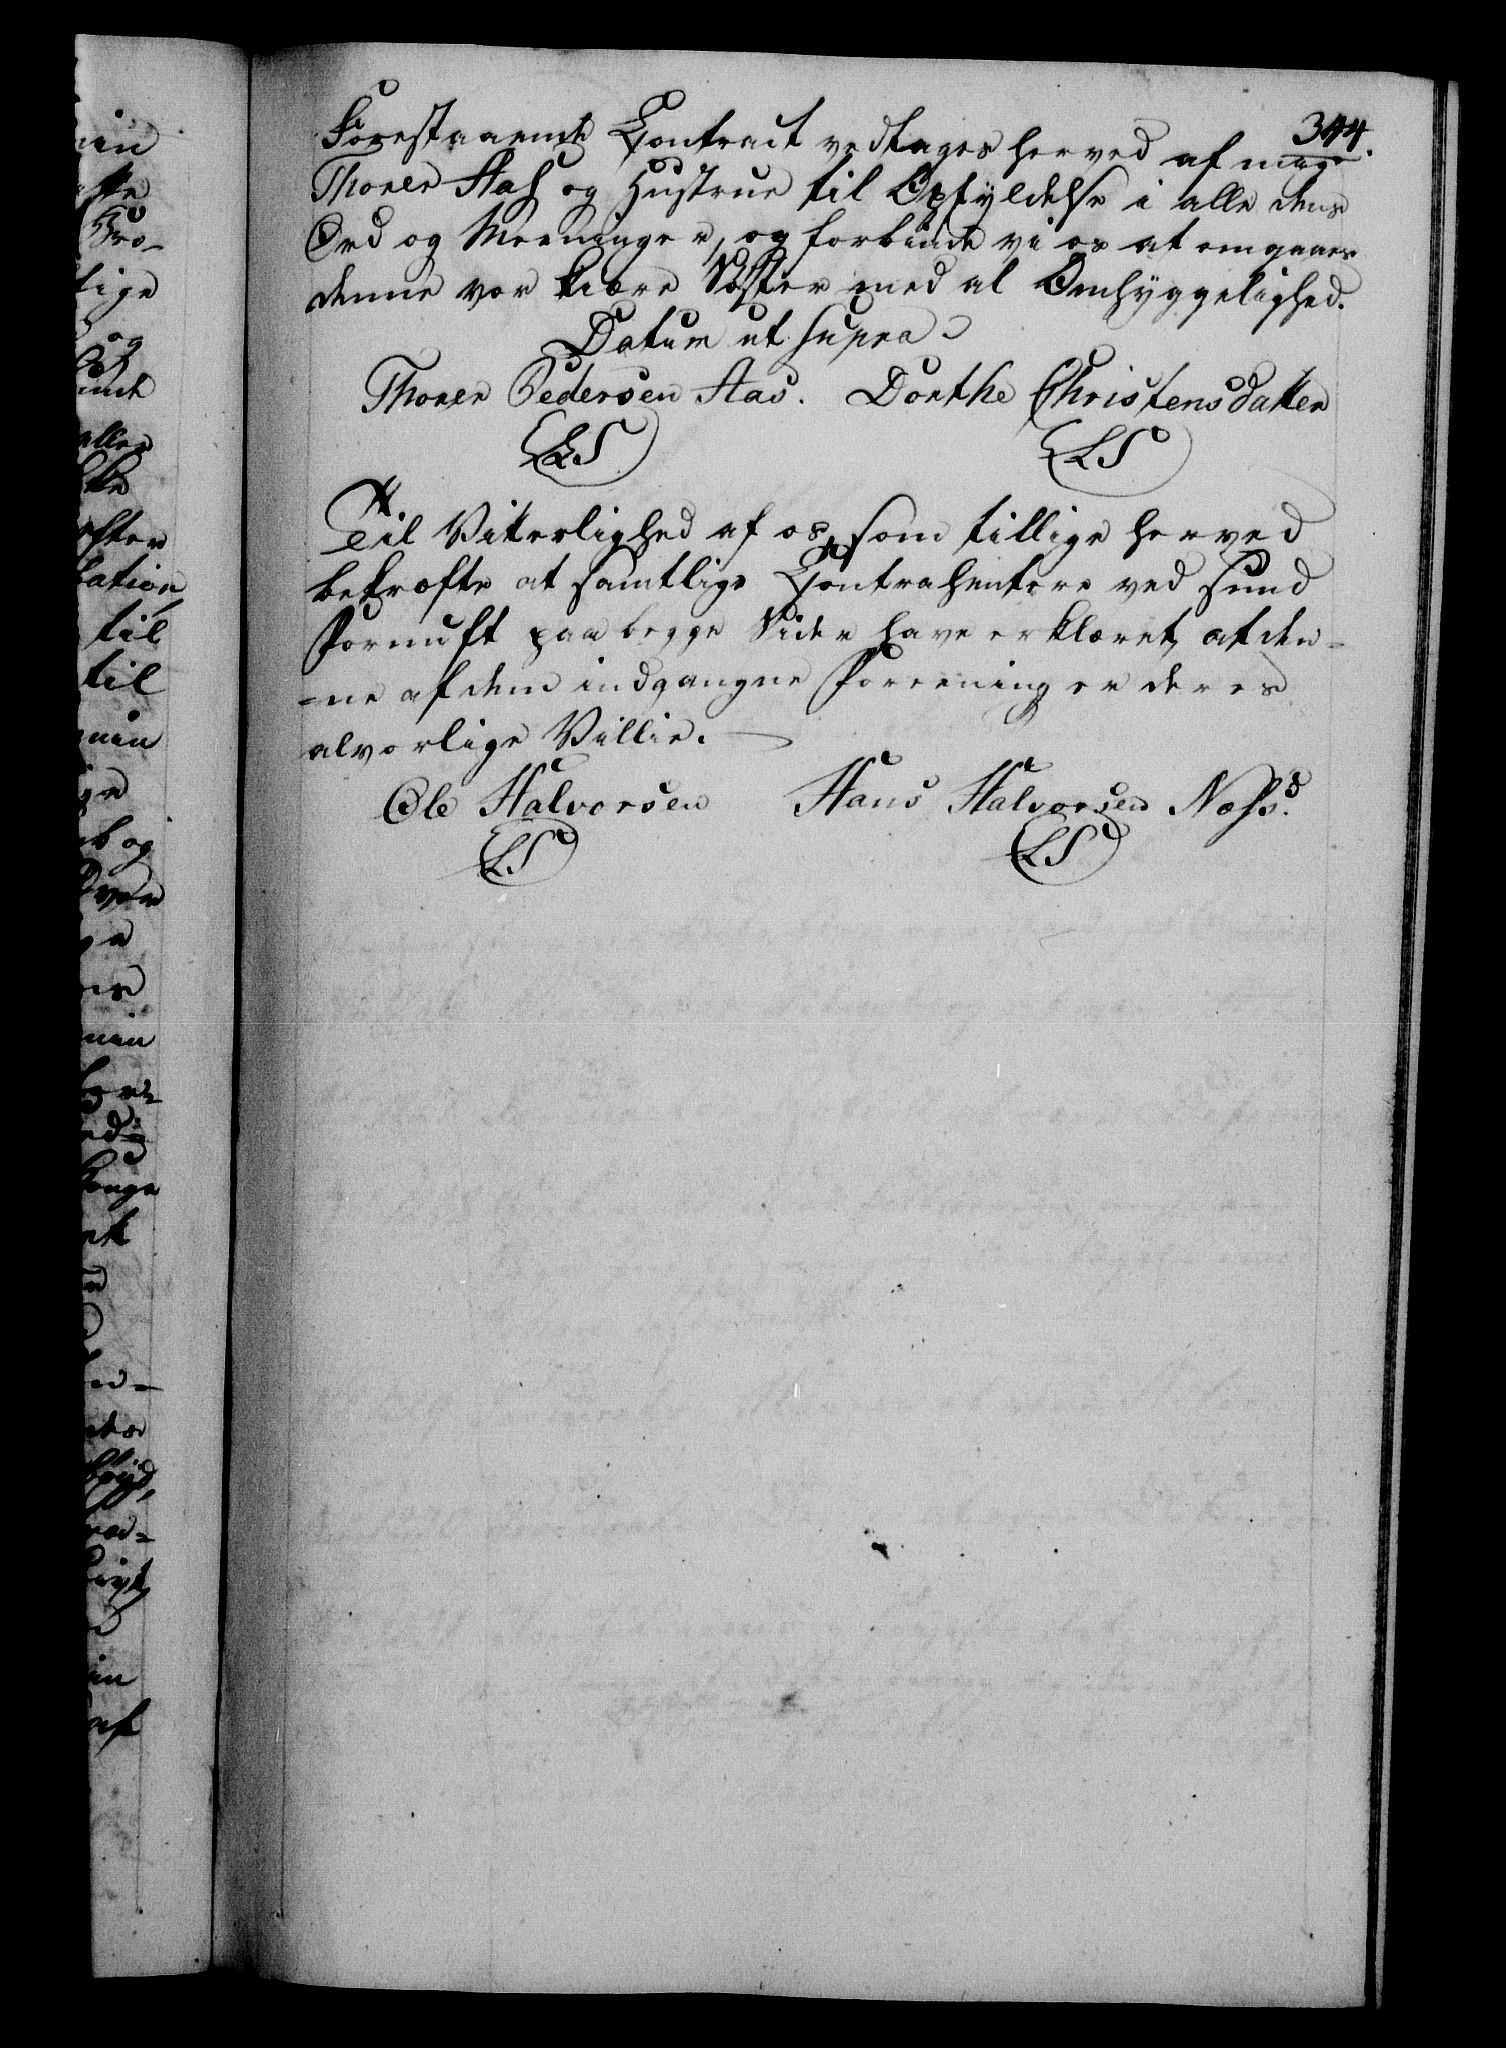 344.
Forestaaende Contract vedtages herved af mig
Thorer Aas og Hustrue til Opfyldelse i alle dens
Ord og Meeninger, og forbinde vi os at omgaaes
denne vor kiære Søster med al Omhyggelighed.
Datum ut supra
Thorer Pedersen Aas. Dorthe Christensdatter
LS LS
Til Vitterlighed af os, som tillige herved
bekræfte at samtlige Contrahentere ved sund
Fornuft paa begge Sider have erklæret, at den-
-ne af dem indgangne Foreening er deres
alvorlige Villie.
Ole Halvorsen Hans Halvorsen Næss.
LS LS